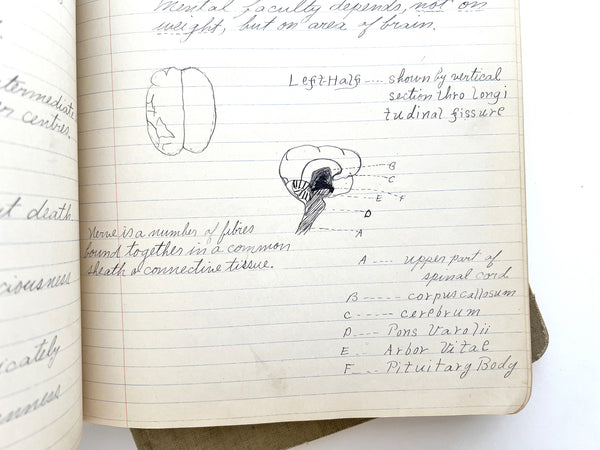 ntermediate
centres.
death.
ciousness
icately
enness
Mental faculty depends, not on
weight, but on area of brain.
Left-Half ---- shown by vertical
section thro Longi
tudinal fissure
B
C
E F
D
A
Nerve is a number of fibres
bound together in a common
sheath a connective tissue.
A .... upper part of
spinal cord
B ----- corpus callosum
C ---- cerebrum
D ---- Pons Varolii
E ... Arbor Vital
F ---- Pituitary Body